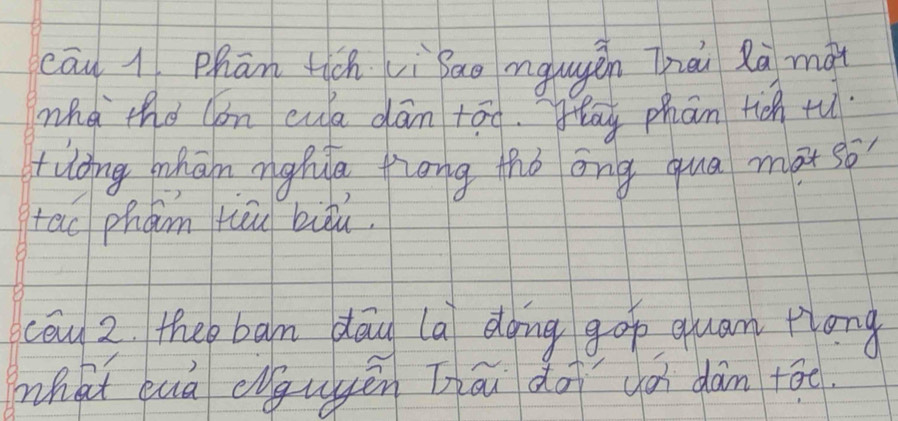 câu 1. Phân tích vì sao nguyễn Trãi là một
nhà thơ lớn của dân tộc. Hãy phân tích tư
tưởng nhân nghĩa trong thơ ông qua một số
tác phẩm tiêu biểu.
câu 2. theo bạn đâu là đóng góp quan trọng
nhất của Nguyễn Trãi đối với dân tộc.